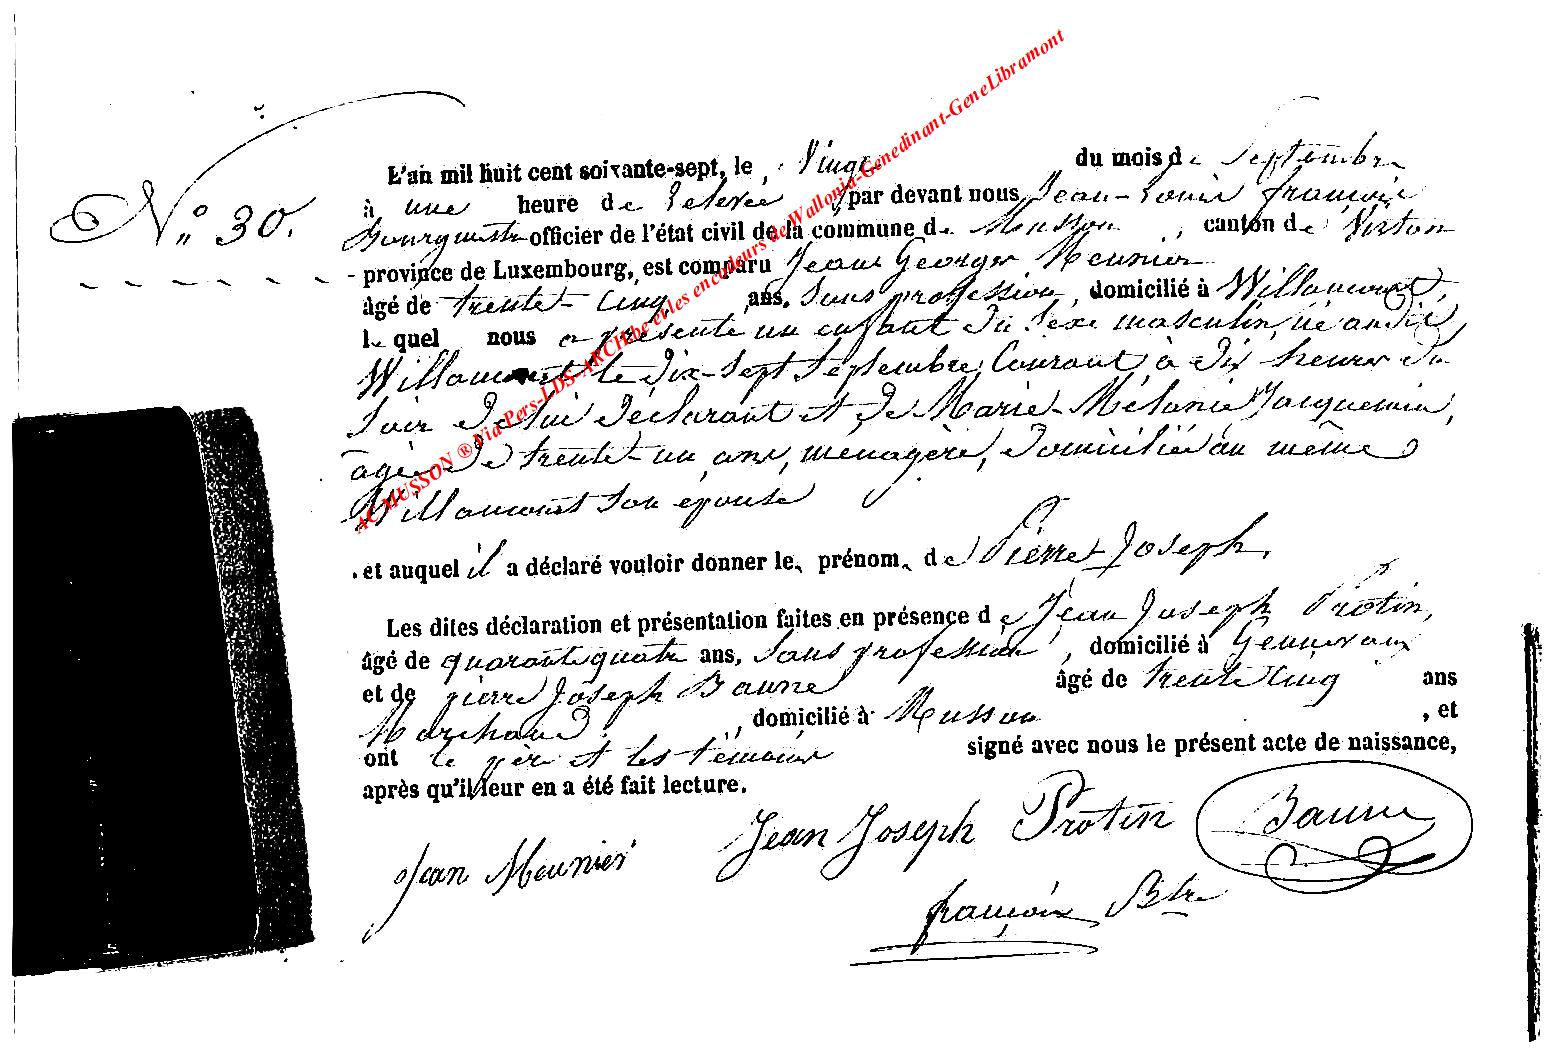 N° 30.
L'an mil huit cent soixante-sept, le Vingt du mois de Septembre
à une heure de relevée par devant nous Jean-Louis françois
Bourgmestre officier de l'état civil de la commune de Musson, canton de Virton
province de Luxembourg, est comparu Jean Georges Meunier
âgé de trente-cinq ans, sans profession, domicilié à Willancourt,
lequel nous a présenté un enfant du sexe masculin, né au dit
Willancourt le dix-sept Septembre Courant à dix heures du
Soir de lui déclarant et de Marie-Mélanie Jacquemin,
agée de trente-un ans, ménagère, domiciliée au même
Willancourt son épouse
et auquel il a déclaré vouloir donner les prénoms de Pierre Joseph.
Les dites déclaration et présentation faites en présence de Jean Joseph Protin,
âgé de quarante quatre ans, Sans profession, domicilié à Gennevaux
et de pierre Joseph Baune âgé de trente cinq ans
Marchand, domicilié à Musson, et
ont le père et les témoins signé avec nous le présent acte de naissance,
après qu'il leur en a été fait lecture.
Jean Meunier Jean Joseph Protin Baune
françois Btre
AC MUSSON ® Via Pers-LDS-ARCH.be et les encodeurs de Wallonia-Genedinant-GeneLibramont